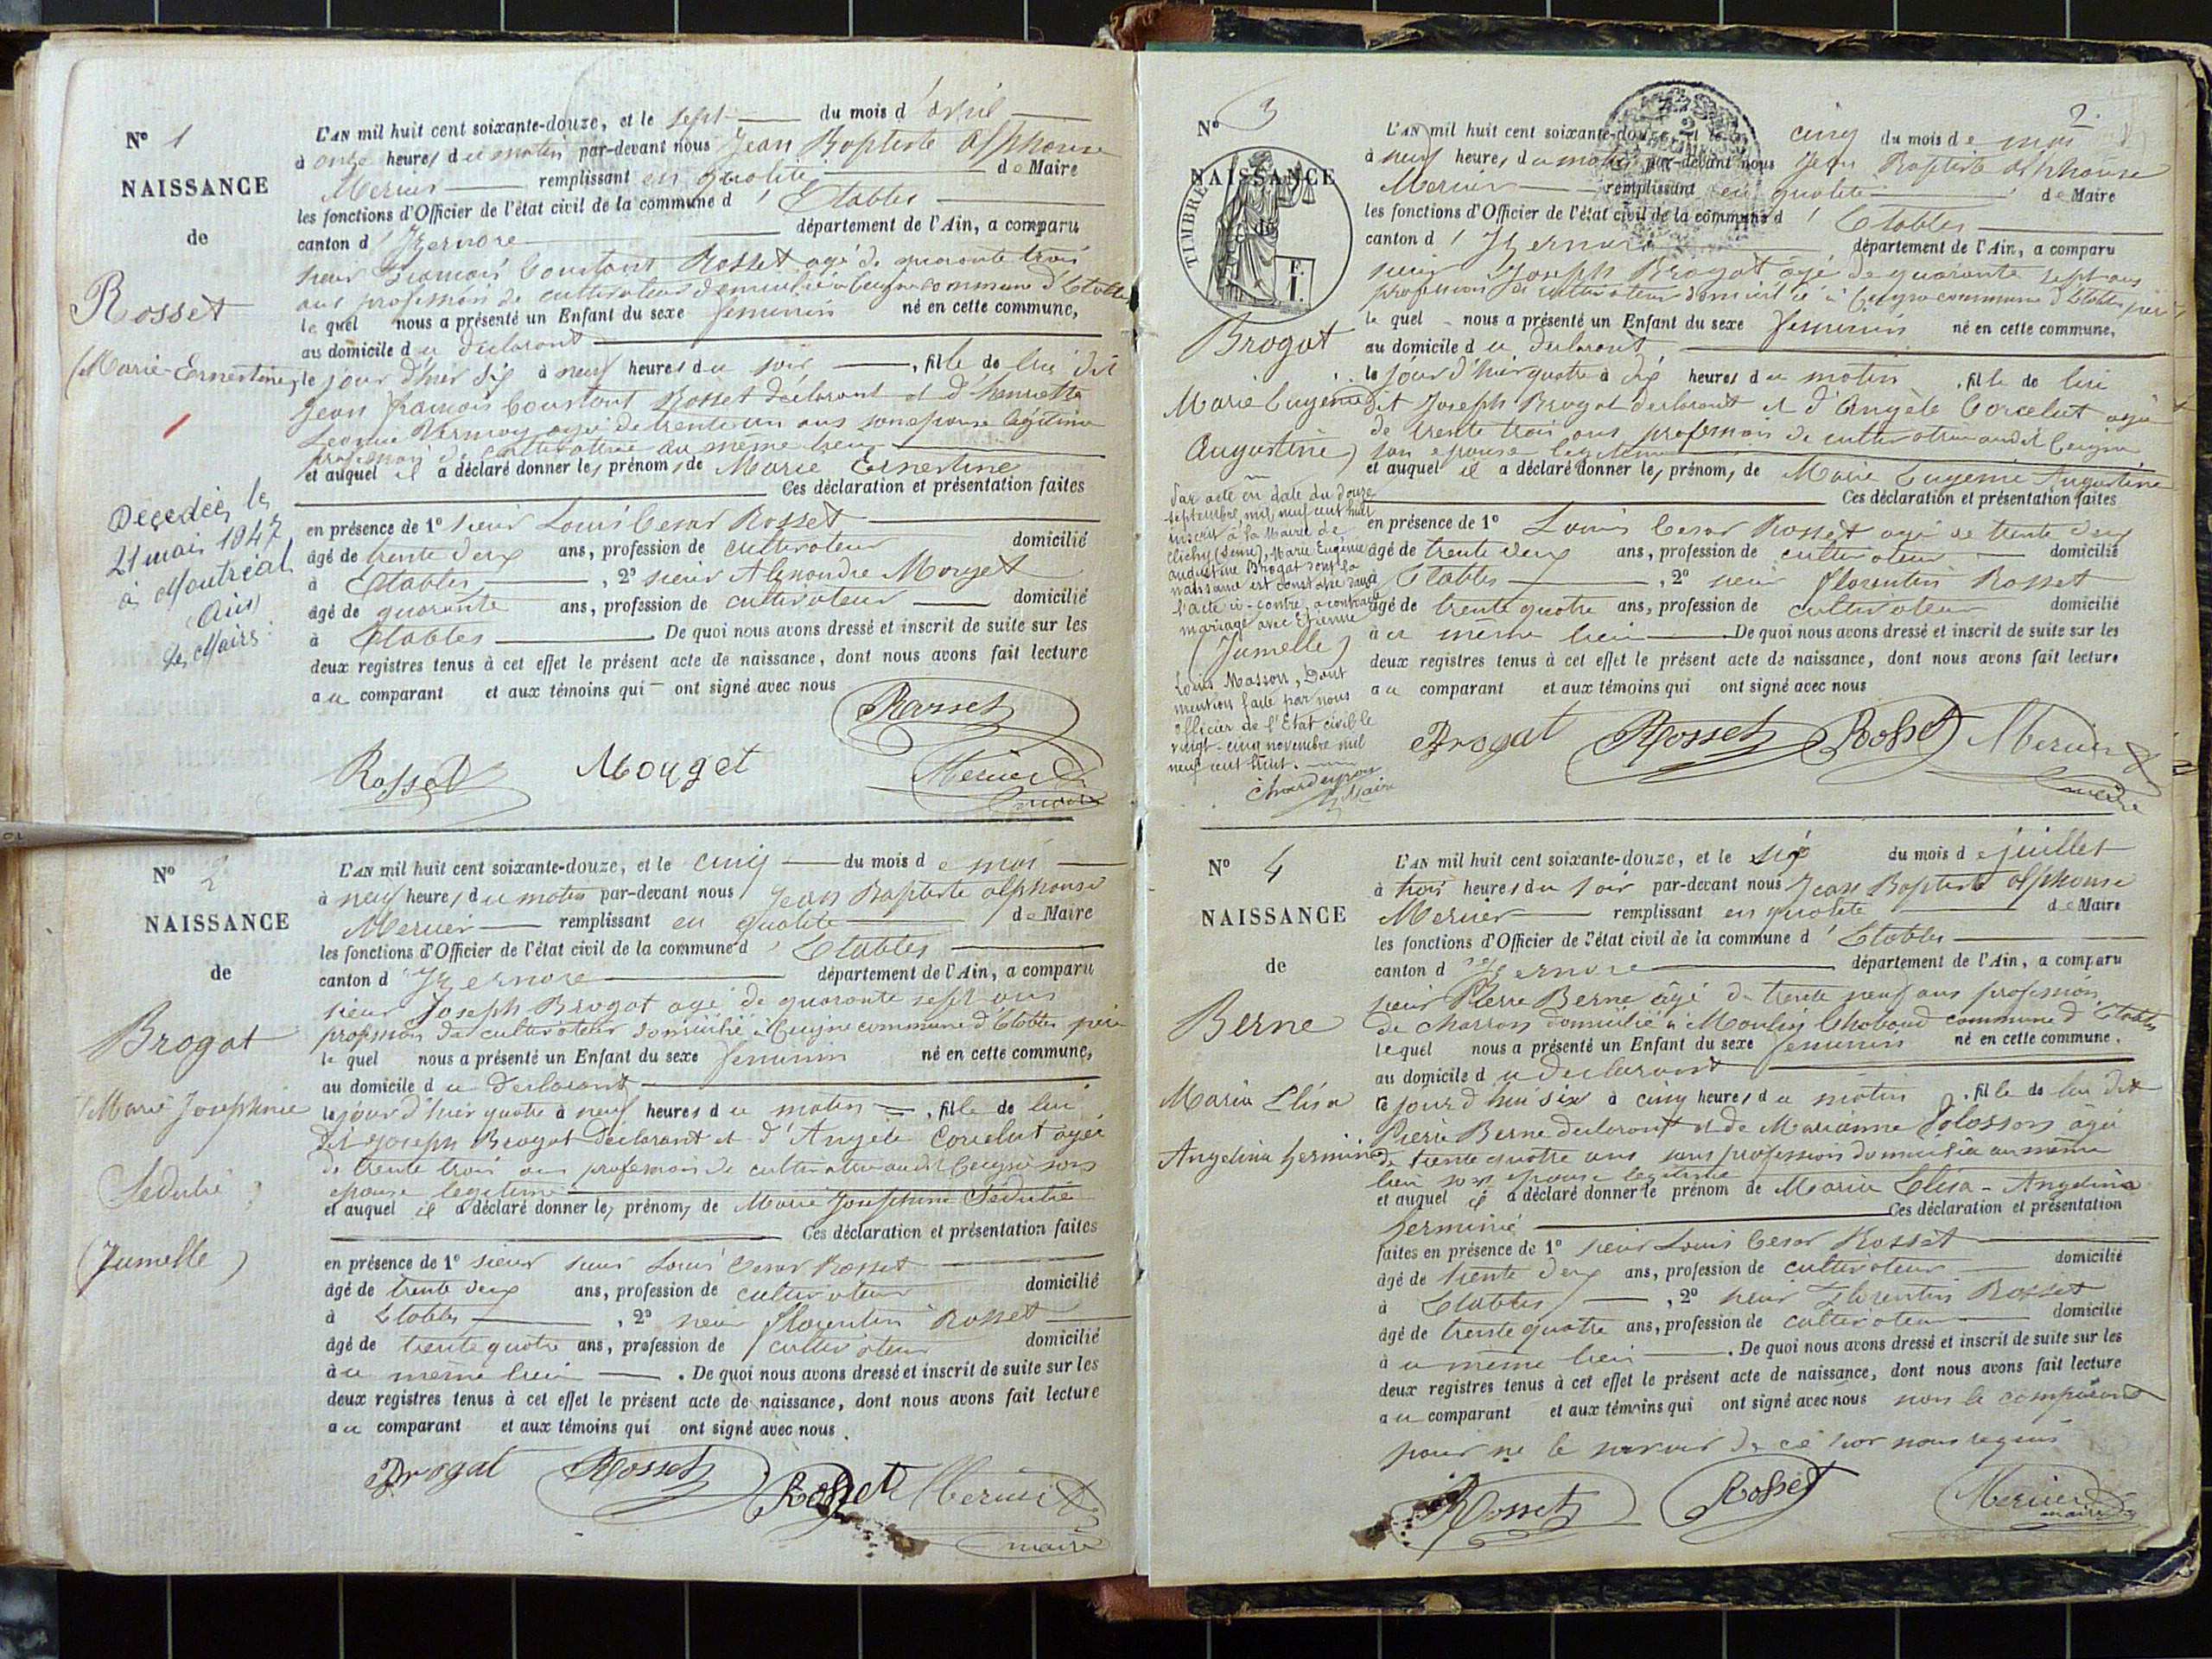 N° 1
NAISSANCE
de
Rosset
(Marie-Ernestine)
Décédée le
21 mai 1947
à Montréal
(Ain)
Le Maire:
L'AN mil huit cent soixante-douze, et le sept du mois d'avril
à onze heures du matin par-devant nous Jean Baptiste Alphonse
Mercier remplissant en qualité de Maire
les fonctions d'Officier de l'état civil de la commune d'Etables
canton d'Izernore département de l'Ain, a comparu
sieur François Constant Rosset agé de quarante trois
ans profession de cultivateur domicilié à Ceignes commune d'Etables
le quel nous a présenté un Enfant du sexe feminin né en cette commune,
au domicile du déclarant
le jour d'hier six à neuf heures du soir, fille de lui dit
Jean françois Constant Rosset déclarant et d'henriette
Léonie agée de trente un ans son épouse légitime
profession de cultivatrice au même lieu
et auquel il a déclaré donner les prénoms de Marie Ernestine
Ces déclaration et présentation faites
en présence de 1° sieur Louis Cesar Rosset
âgé de trente deux ans, profession de cultivateur domicilié
à Etables, 2° sieur Alexandre Mouget
âgé de quarante ans, profession de cultivateur domicilié
à Etables. De quoi nous avons dressé et inscrit de suite sur les
deux registres tenus à cet effet le présent acte de naissance, dont nous avons fait lecture
au comparant et aux témoins qui ont signé avec nous
Rosset
Rosset Mouget Mercier
maire
N° 2
NAISSANCE
de
Brogat
(Marie Josephine
Sédulie
(Jumelle)
L'AN mil huit cent soixante-douze, et le cinq du mois de mai
à neuf heures du matin par-devant nous Jean Baptiste alphonse
Mercier remplissant en qualité de Maire
les fonctions d'Officier de l'état civil de la commune d'Etables
canton d'Izernore département de l'Ain, a comparu
sieur Joseph Brogat agé de quarante sept ans
profession de cultivateur domicilié à Ceignes commune d'Etables père
le quel nous a présenté un Enfant du sexe feminin né en cette commune,
au domicile du declarant
le jour d'hier quatre à neuf heures du matin, fille de lui
dit Joseph Brogat declarant et d'Angèle Corcelut agée
de trente trois ans profession de cultivatrice audit Ceignes son
epouse legitime
et auquel il a déclaré donner les prénoms de Marie Josephine Sédulie
Ces déclaration et présentation faites
en présence de 1° sieur sieur Louis Cesar Rosset
âgé de trente deux ans, profession de cultivateur domicilié
à Etables, 2° sieur florentin Rosset
âgé de trente quatre ans, profession de cultivateur domicilié
au même lieu. De quoi nous avons dressé et inscrit de suite sur les
deux registres tenus à cet effet le présent acte de naissance, dont nous avons fait lecture
au comparant et aux témoins qui ont signé avec nous.
Brogat Rosset Rosset Mercier
maire
2.
N° 3
NAISSANCE
de
TIMBRE
F.
1.
Brogat
Marie Eugénie
Augustine)
Par acte en date du douze
septembre mil neuf cent huit
inscrit à la Mairie de
Clichy (Seine), Marie Eugénie
Augustine Brogat dont la
naissance est constatée dans
l'acte ci-contre, a contracté
mariage avec Etienne
(Jumelle)
Louis Masson, Dont
mention faite par nous
officier de l'Etat civil le
vingt-cinq novembre mil
neuf cent huit.
Maire
L'AN mil huit cent soixante-douze, et le cinq du mois de mai
à neuf heures du matin par-devant nous Jean Baptiste alphonse
Mercier remplissant en qualité de Maire
les fonctions d'Officier de l'état civil de la commune d'Etables
canton d'Izernore département de l'Ain, a comparu
sieur Joseph Brogat âgé de quarante sept ans
profession de cultivateur domicilié à Ceignes commune d'Etables père
le quel nous a présenté un Enfant du sexe feminin né en cette commune,
au domicile du declarant
le jour d'hier quatre à dix heures du matin, fille de lui
dit Joseph Brogat declarant et d'Angèle Corcelut agée
de trente trois ans profession de cultivatrice audit Ceignes
son epouse legitime
et auquel il a déclaré donner les prénoms de Marie Eugénie Augustine
Ces déclaration et présentation faites
en présence de 1° Louis Cesar Rosset agé de trente deux
âgé de trente deux ans, profession de cultivateur domicilié
à Etables, 2° sieur florentin Rosset
âgé de trente quatre ans, profession de cultivateur domicilié
au même lieu. De quoi nous avons dressé et inscrit de suite sur les
deux registres tenus à cet effet le présent acte de naissance, dont nous avons fait lecture
au comparant et aux témoins qui ont signé avec nous
Brogat Rosset Rosset Mercier
maire
N° 4
NAISSANCE
de
Berne
Maria Elisa
Angelina herminie
L'AN mil huit cent soixante-douze, et le six du mois de juillet
à trois heures du soir par-devant nous Jean Baptiste alphonse
Mercier remplissant en qualité de Maire
les fonctions d'Officier de l'état civil de la commune d'Etables
canton d'Izernore département de l'Ain, a comparu
sieur Pierre Berne âgé de trente neuf ans profession
de charron domicilié à Moulin Chabaud commune d'Etables
lequel nous a présenté un Enfant du sexe feminin né en cette commune,
au domicile du declarant
le jour d'hui six à cinq heures du matin, fille de lui dit
Pierre Berne declarant et de Marianne âgée
de trente quatre ans sans profession domiciliée au même
lieu son epouse legitime
et auquel il a déclaré donner le prénom de Maria Elisa-Angelina
herminie Ces déclaration et présentation
faites en présence de 1° sieur Louis Cesar Rosset domicilié
âgé de trente deux ans, profession de cultivateur
à Etables, 2° sieur Florentin Rosset
âgé de trente quatre ans, profession de cultivateur domicilié
au même lieu. De quoi nous avons dressé et inscrit de suite sur les
deux registres tenus à cet effet le présent acte de naissance, dont nous avons fait lecture
au comparant et aux témoins qui ont signé avec nous non le comparant
pour ne le savoir de ce par nous requis
Rosset Rosset Mercier
maire